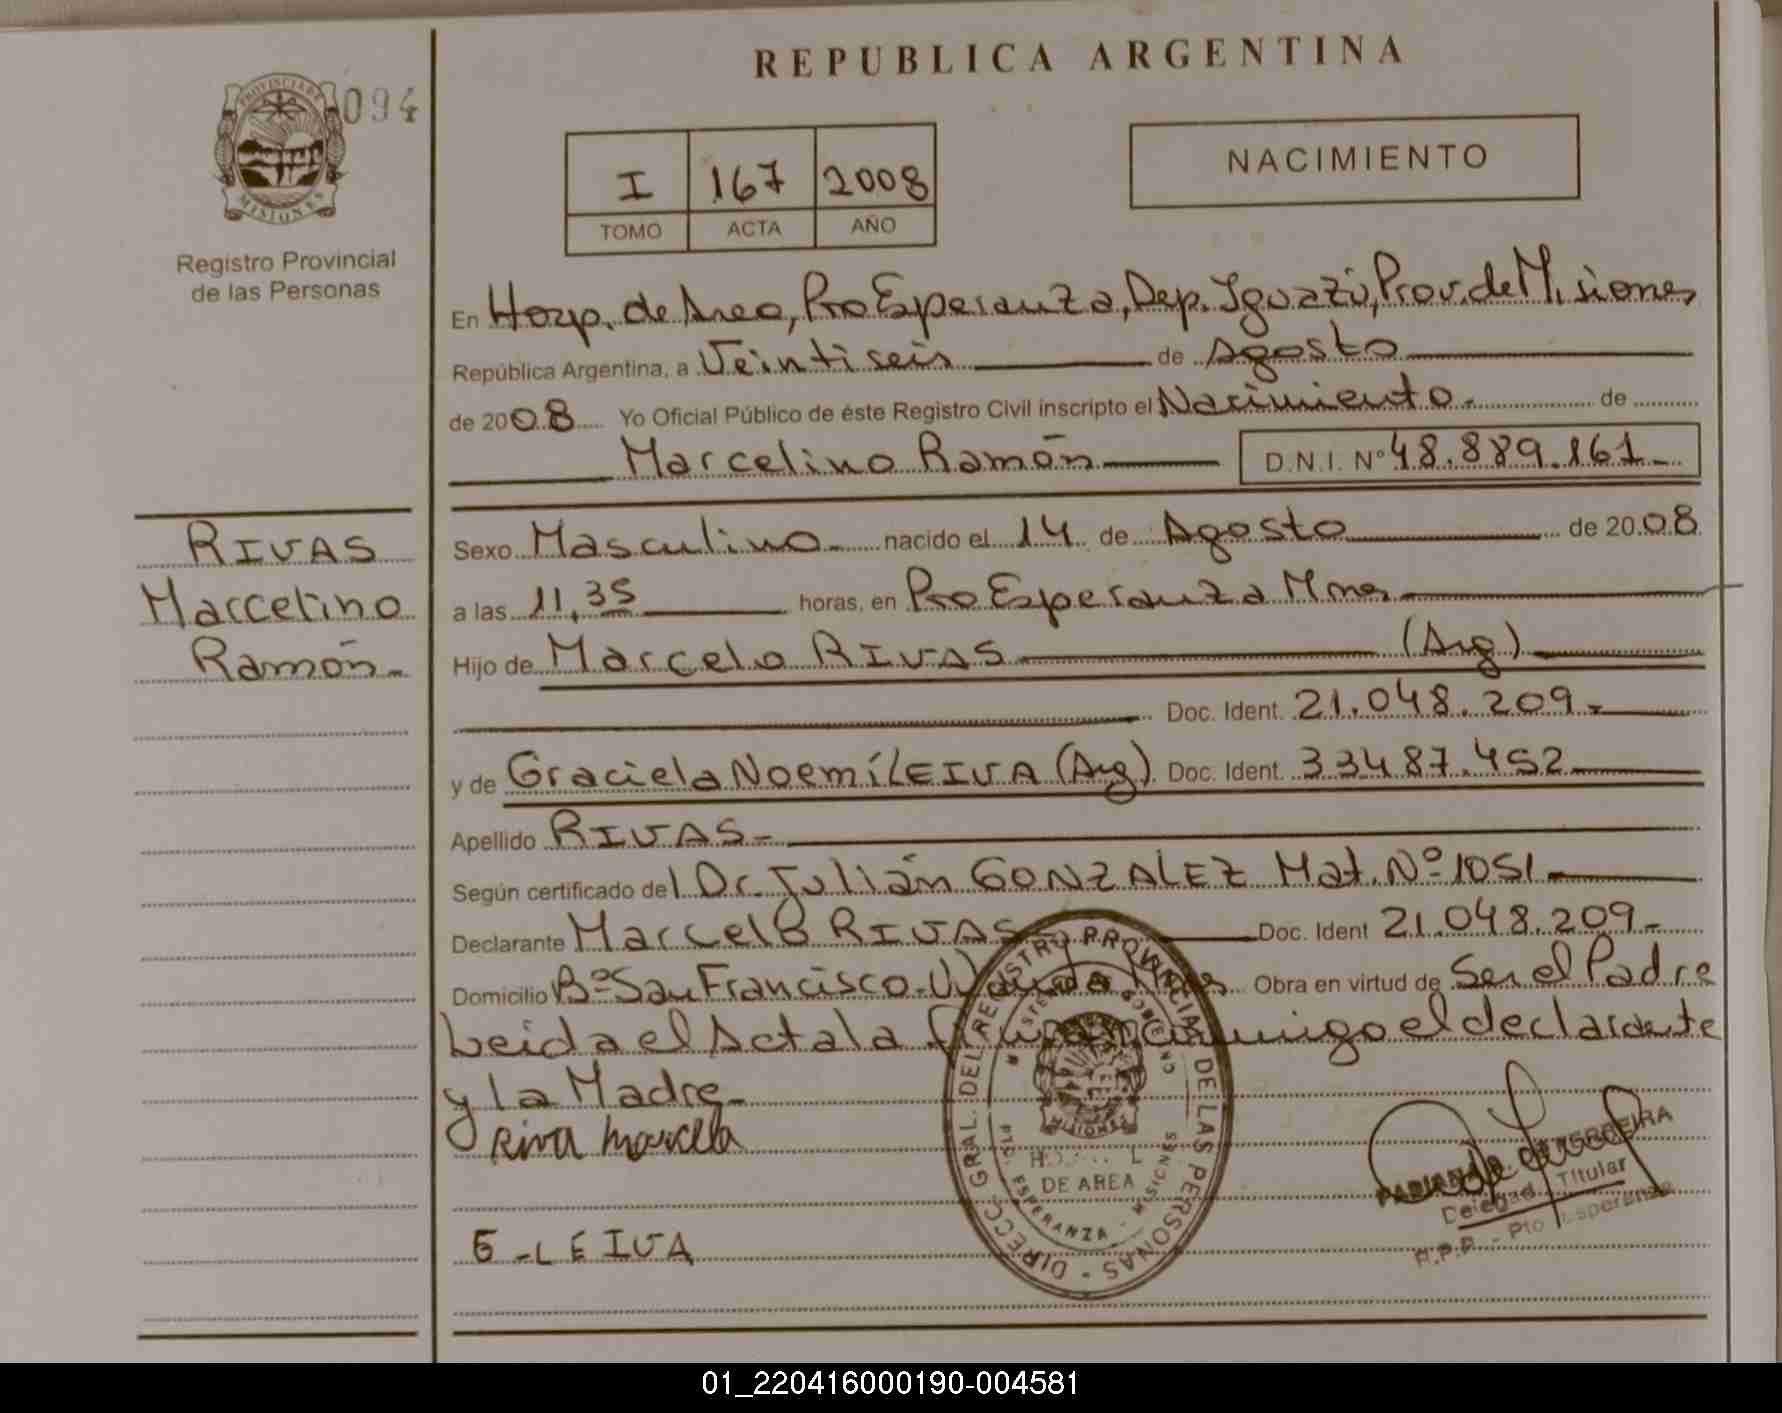 REPUBLICA ARGENTINA
PROVINCIA DE
MISIONES
094
Registro Provincial
de las Personas
I 167 2008
TOMO ACTA AÑO
NACIMIENTO
En Hosp. de Area, Pto Esperanza, Dep. Iguazú, Prov. de Misiones
República Argentina, a Veintiseis de Agosto
de 2008 Yo Oficial Público de éste Registro Civil inscripto el Nacimiento. de
Marcelino Ramón D.N.I. Nº 48.889.161-
RIVAS
Marcelino
Ramón-
Sexo Masculino- nacido el 14 de Agosto de 2008
a las 11,35 horas, en Pto Esperanza Mnes
Hijo de Marcelo RIVAS (Arg)
Doc. Ident. 21.048.209-
y de Graciela Noemí LEIVA (Arg) Doc. Ident. 33487.452
Apellido RIVAS-
Según certificado del Dr. Julián GONZALEZ Mat. Nº 1051-
Declarante Marcelo RIVAS Doc. Ident 21.048.209-
Domicilio Bº San Francisco. Wanda Mnes Obra en virtud de Ser el Padre
Leida el Acta la firman conmigo el declarante
y la Madre-
Riva Marcelo
G-LEIVA
DIRECC. GRAL. DEL REGISTRO PROVINCIAL DE LAS PERSONAS
MISIONES
DE AREA
PTO. ESPERANZA - MISIONES
FERREIRA
Delegad Titular
R.P.P. - Pto Esperanza
01_220416000190-004581